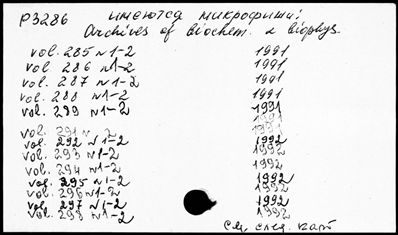 P3286 имеются микрофиши:
Archives of biochem. & biophys.
vol. 285 N 1-2 1991
vol. 286 N 1-2 1991
vol. 287 N 1-2 1991
vol. 288 N 1-2 1991
vol. 289 N 1-2 1991
vol. 291 N 2 1991
vol. 292 N 1-2 1992
vol. 293 N 1-2 1992
vol. 294 N 1-2 1992
vol. 295 N 1-2 1992
vol. 296 N 1-2 1992
vol. 297 N 1-2 1992
vol. 298 N 1-2 1992
См. след. карт